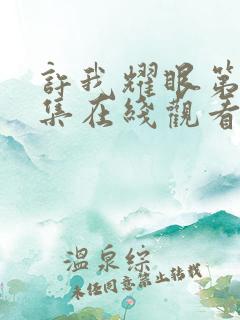 許我耀眼第
集在綫觀看
溫泉綜
未经同意禁止转载